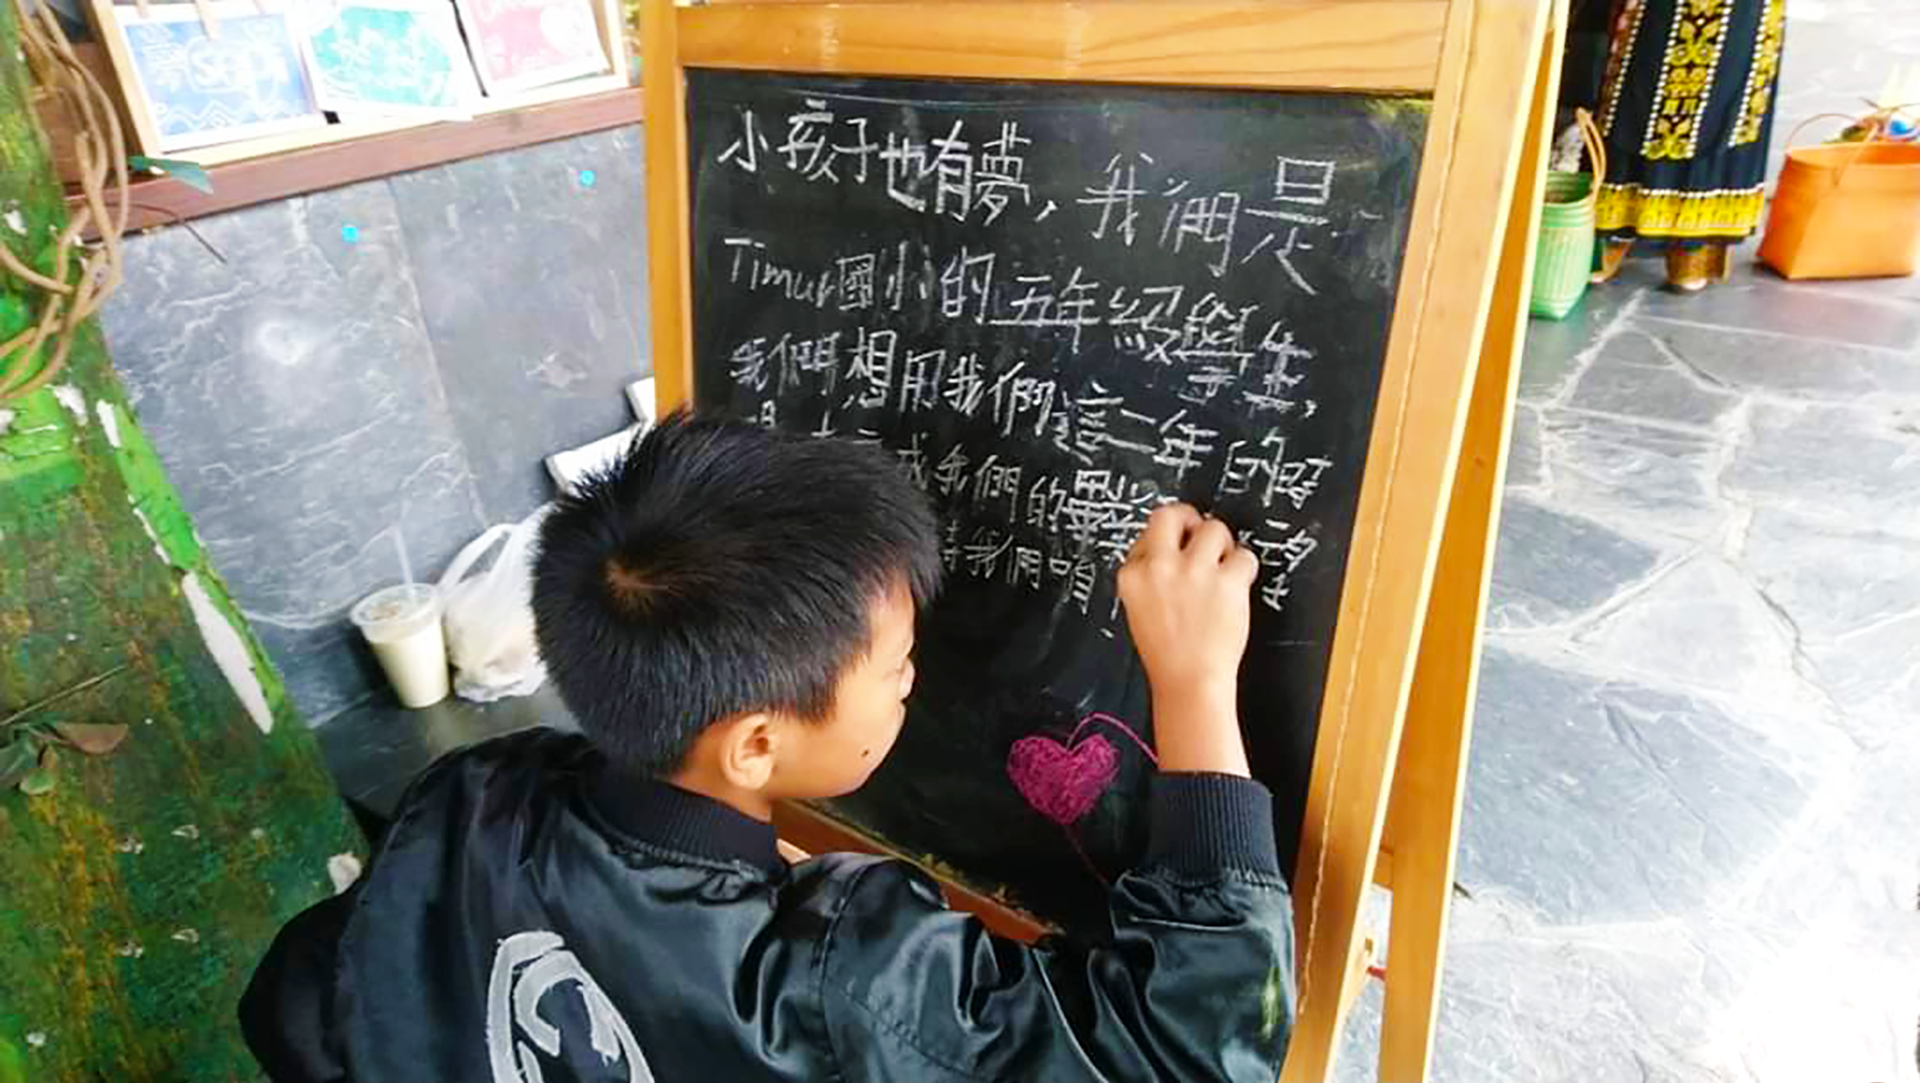 小孩子也有夢，我們是
Timur國小的五年級學生，
我們想用我們這二年的時
成我們的畢業
請我們喧